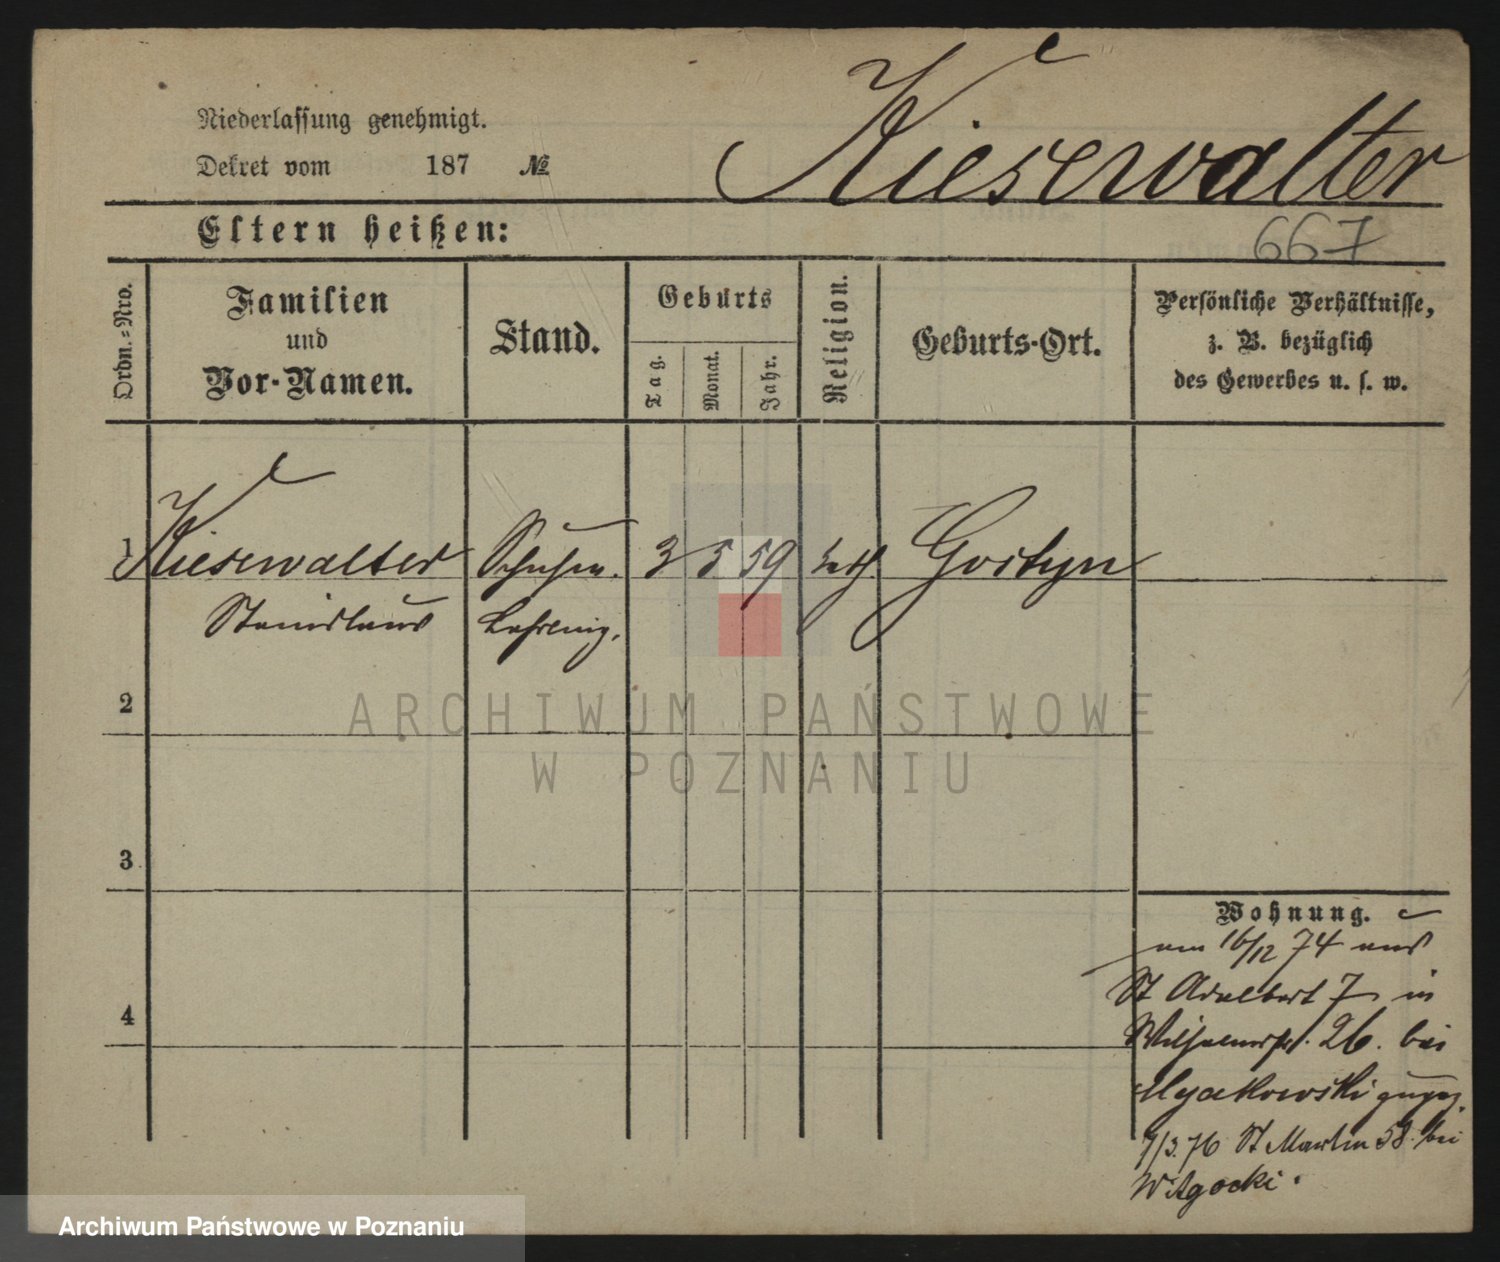 Niederlassung genehmigt.
Dekret vom 187 №
Kiesewalter
667
Eltern heißen:
Ordn.-Nro.
Familien
und
Vor-Namen.
Stand.
Geburts
Tag.
Monat.
Jahr.
Religion.
Geburts-Ort.
Persönliche Verhältnisse,
z. B. bezüglich
des Gewerbes u. s. w.
1 Kiesewalter Schuhm. 3 5 59 kath. Gostyn
Stanislaus Lehrling.
2
3
4
Wohnung.
am 16/12 74 aus
St Adalbert 7 in
Wilhelmstr. 26. bei
gezog.
7/3.76 St Martin 58. bei
ARCHIWUM PAŃSTWOWE
W POZNANIU
Archiwum Państwowe w Poznaniu